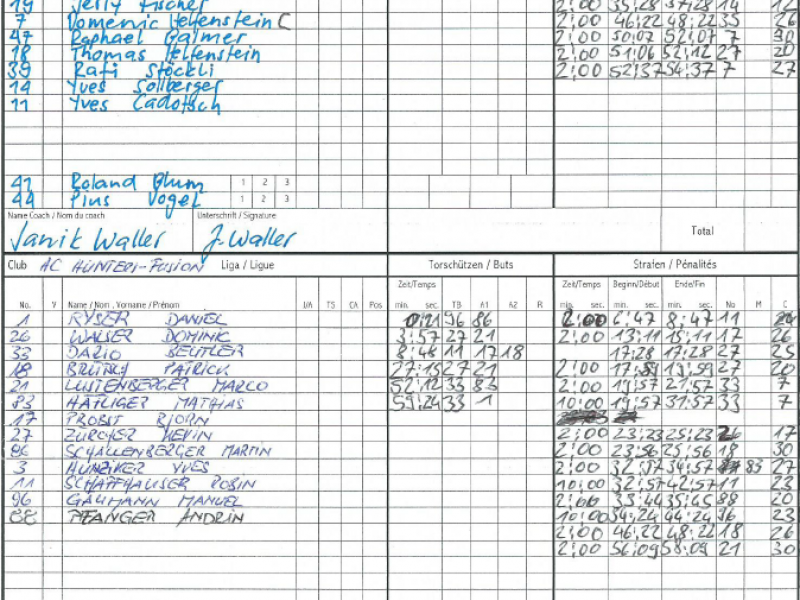 19 Jerry Fischer 2:00 35:28 37:28 14 12
7 Domenic Helfenstein C 2:00 46:22 48:22 35 26
47 Raphael Galmer 2:00 50:07 52:07 7 30
18 Thomas Helfenstein 2:00 51:06 52:12 27 20
39 Rafi Stöckli 2:00 52:37 54:37 7 27
14 Yves Sollberger
11 Yves Cadotsch
41 Roland Blum 1 2 3
44 Pius Vogel 1 2 3
Name Coach / Nom du coach Unterschrift / Signature
Janik Waller J. Waller Total
Club AC HUNTERS-FUSION Liga / Ligue Torschützen / Buts Strafen / Pénalités
Zeit/Temps Zeit/Temps Beginn/Début Ende/Fin
No. Y Name / Nom , Vorname / Prénom I/A TS CA Pos min. sec. TB A1 A2 R min. sec. min. sec. min. sec. No M C
1 RYSER DANIEL 0:21 96 86 2:00 6:47 8:47 11
26 WALSER DOMINIK 3:57 27 21 2:00 13:11 15:11 17 26
33 DARIO BEUTLER 8:46 11 17 18 17:28 17:28 27 25
18 PATRICK 27:15 27 21 2:00 27 20
21 LUSTENBERGER MARCO 52:12 33 83 2:00 19:57 21:57 33 7
83 HÄFLIGER MATHIAS 59:24 33 1 10:00 19:57 31:57 33 7
17 PROBST BJÖRN
27 ZÜRCHER KEVIN 2:00 23:23 25:23 17
86 SCHALLENBERGER MARTIN 2:00 23:56 25:56 18 30
3 HUNZIKER YVES 2:00 34:57 83 27
11 SCHAFFHAUSER ROBIN 10:00 32:57 42:57 11 23
96 GAUMANN MANUEL 2:00 33:44 35:45 88 20
88 PFANGER ANDRIN 10:00 34:24 44:24 96 23
2:00 46:22 48:22 18 26
2:00 56:09 58:09 21 30